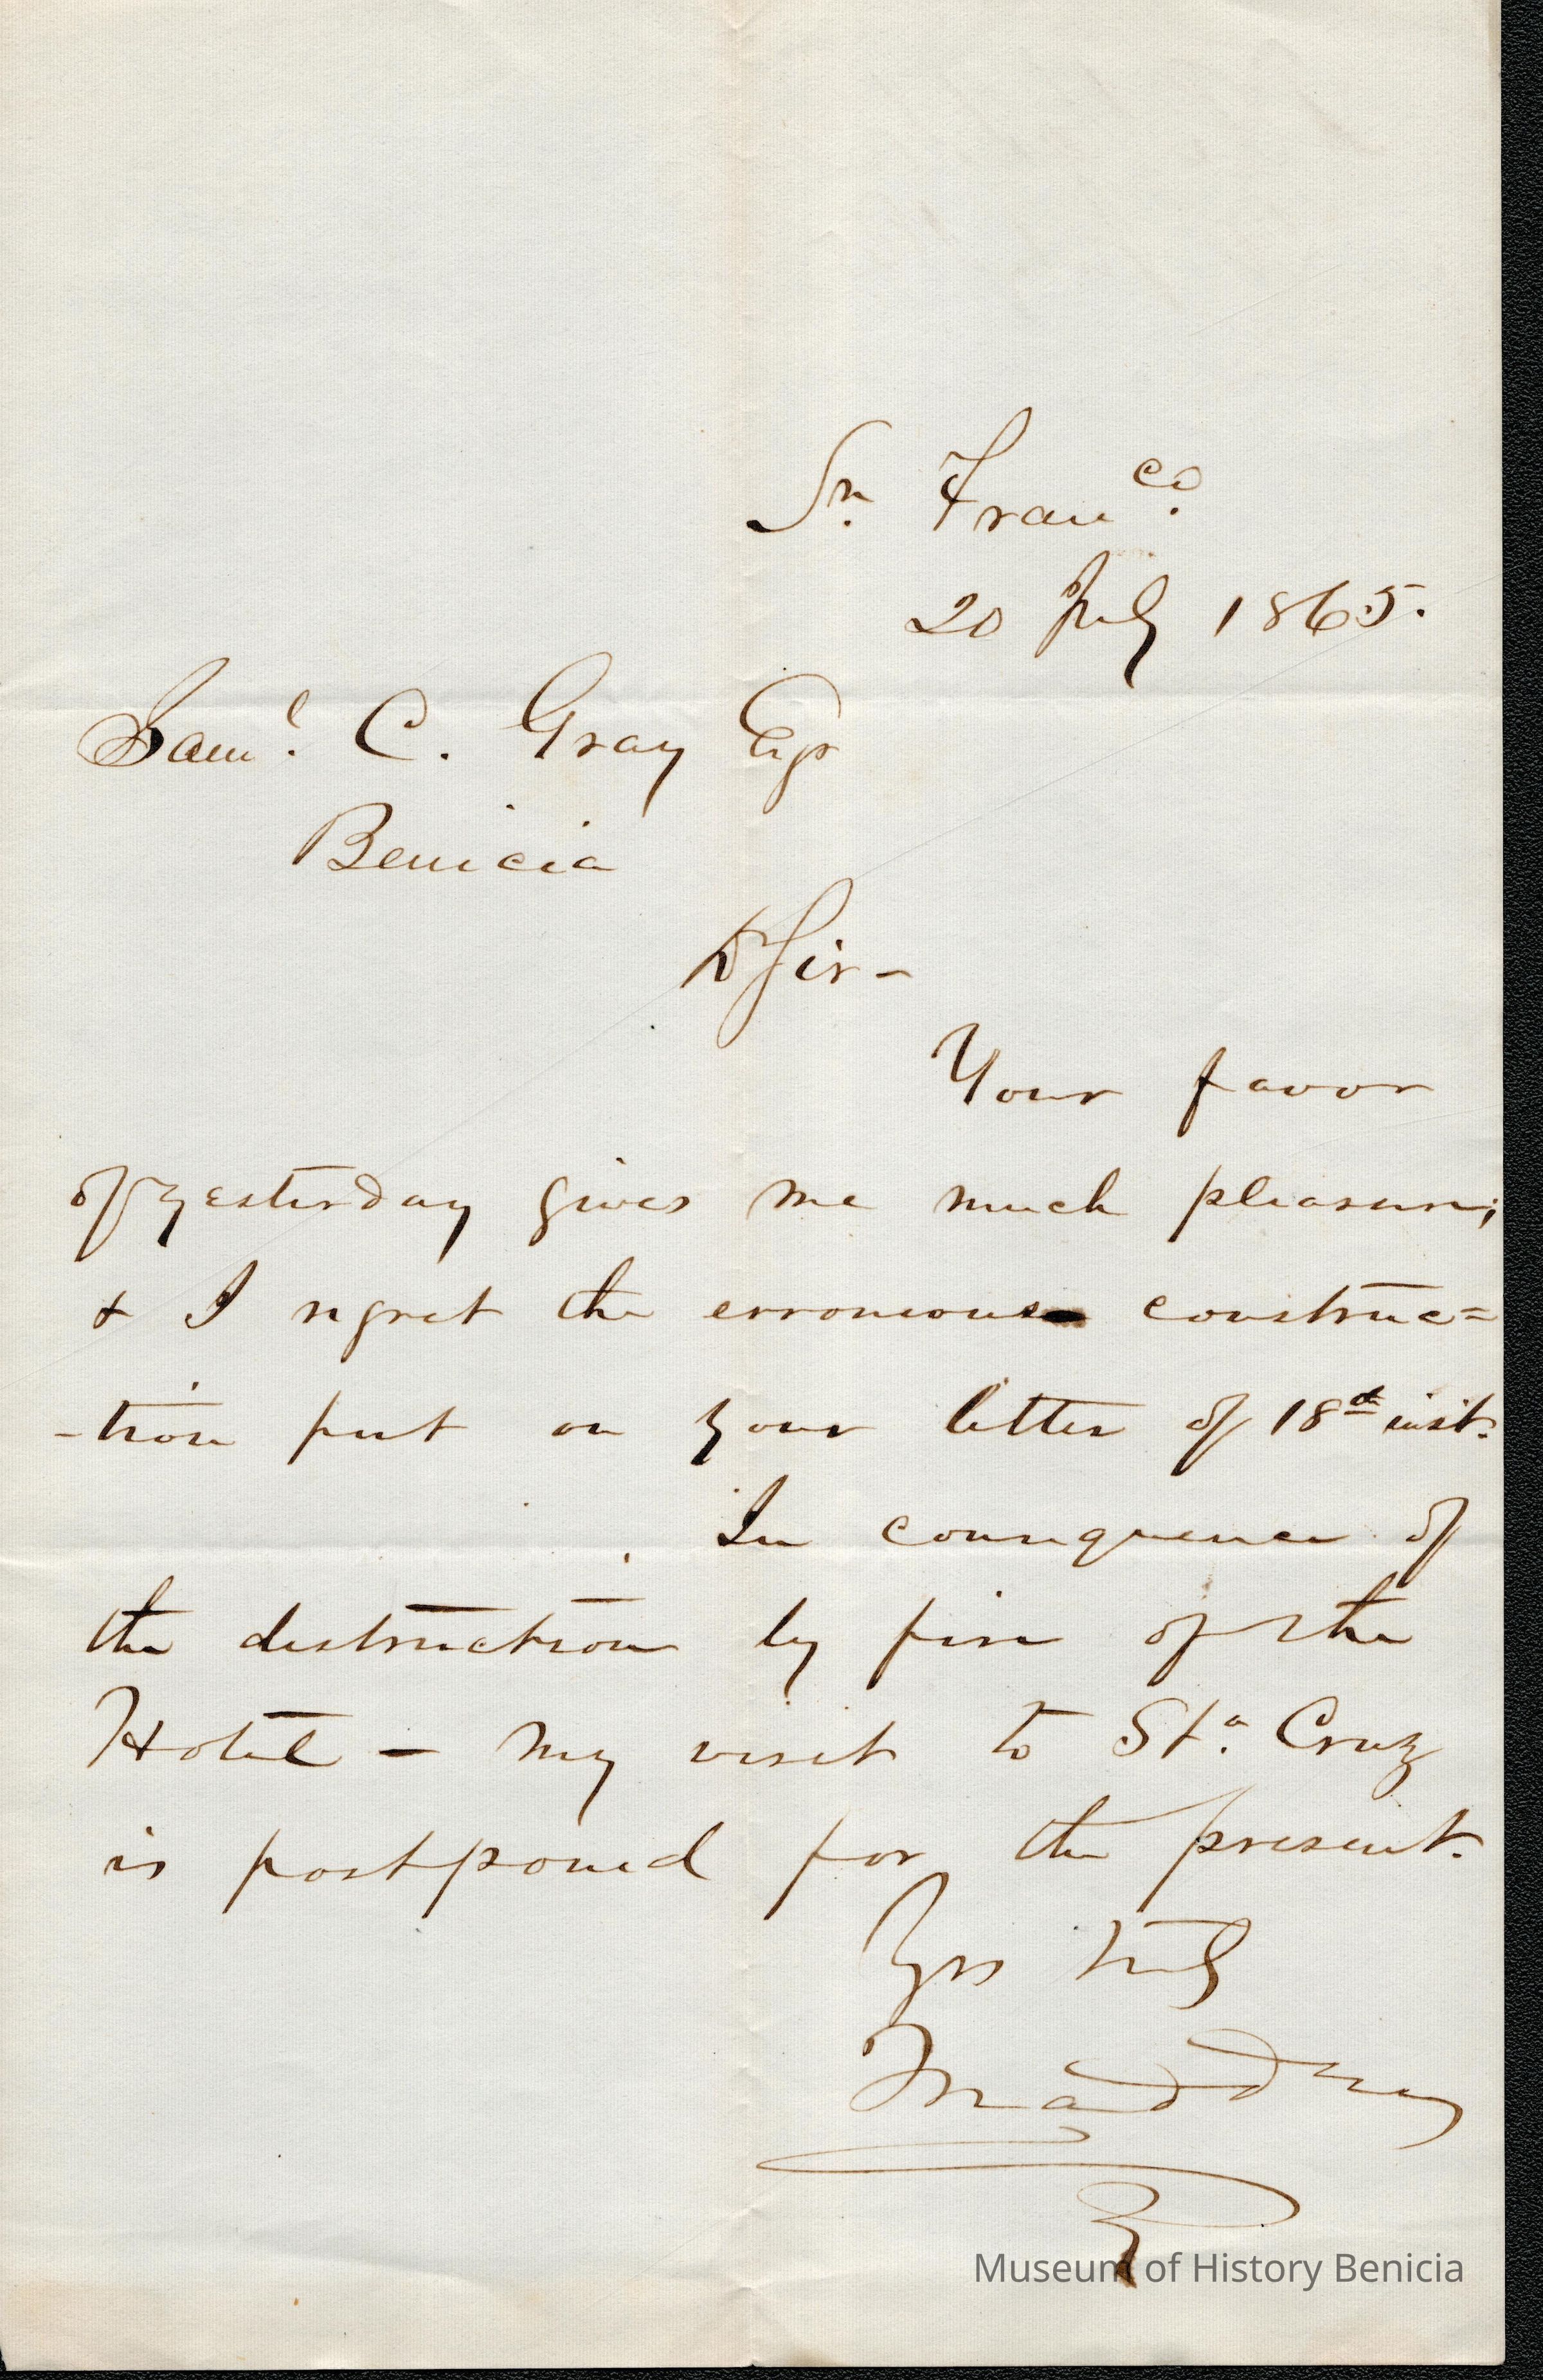 Sn. Franco.
20 July 1865.
Saml. C. Gray Esqr
Benicia
D Sir -
Your favor
of yesterday gives me much pleasure;
& I regret the erroneous construc=
-tion put on your letter of 18th inst.
In consequence of
the destruction by fire of the
Hotel - my visit to Sta. Cruz
is postponed for the present.
Yrs truly
Museum of History Benicia